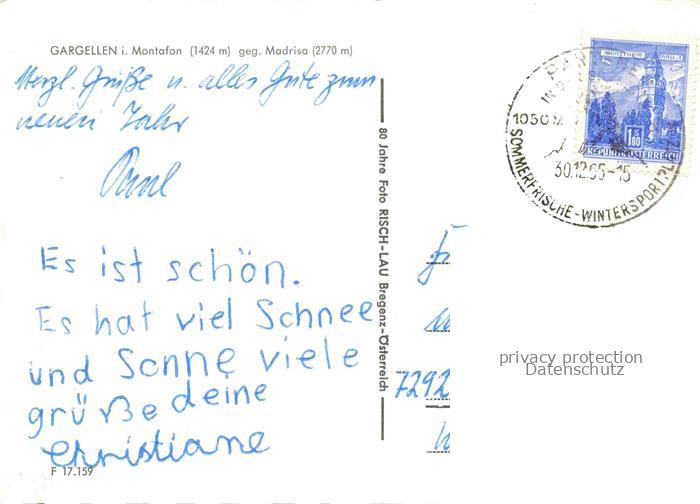 GARGELLEN i. Montafon (1424 m) geg. Madrisa (2770 m)
Herzl. Grüße u. alles Gute zum
neuen Jahr
Paul
Es ist schön.
Es hat viel Schnee
und Sonne viele
grüße deine
Christiane
F 17.159
80 Jahre Foto RISCH-LAU Bregenz-Österreich
MÜNZTURM HALL i. T.
1.80
REPUBLIK ÖSTERREICH
1050 M
30.12.65-15
SOMMERFRISCHE-WINTERSPORTPLATZ
7292
privacy protection
Datenschutz